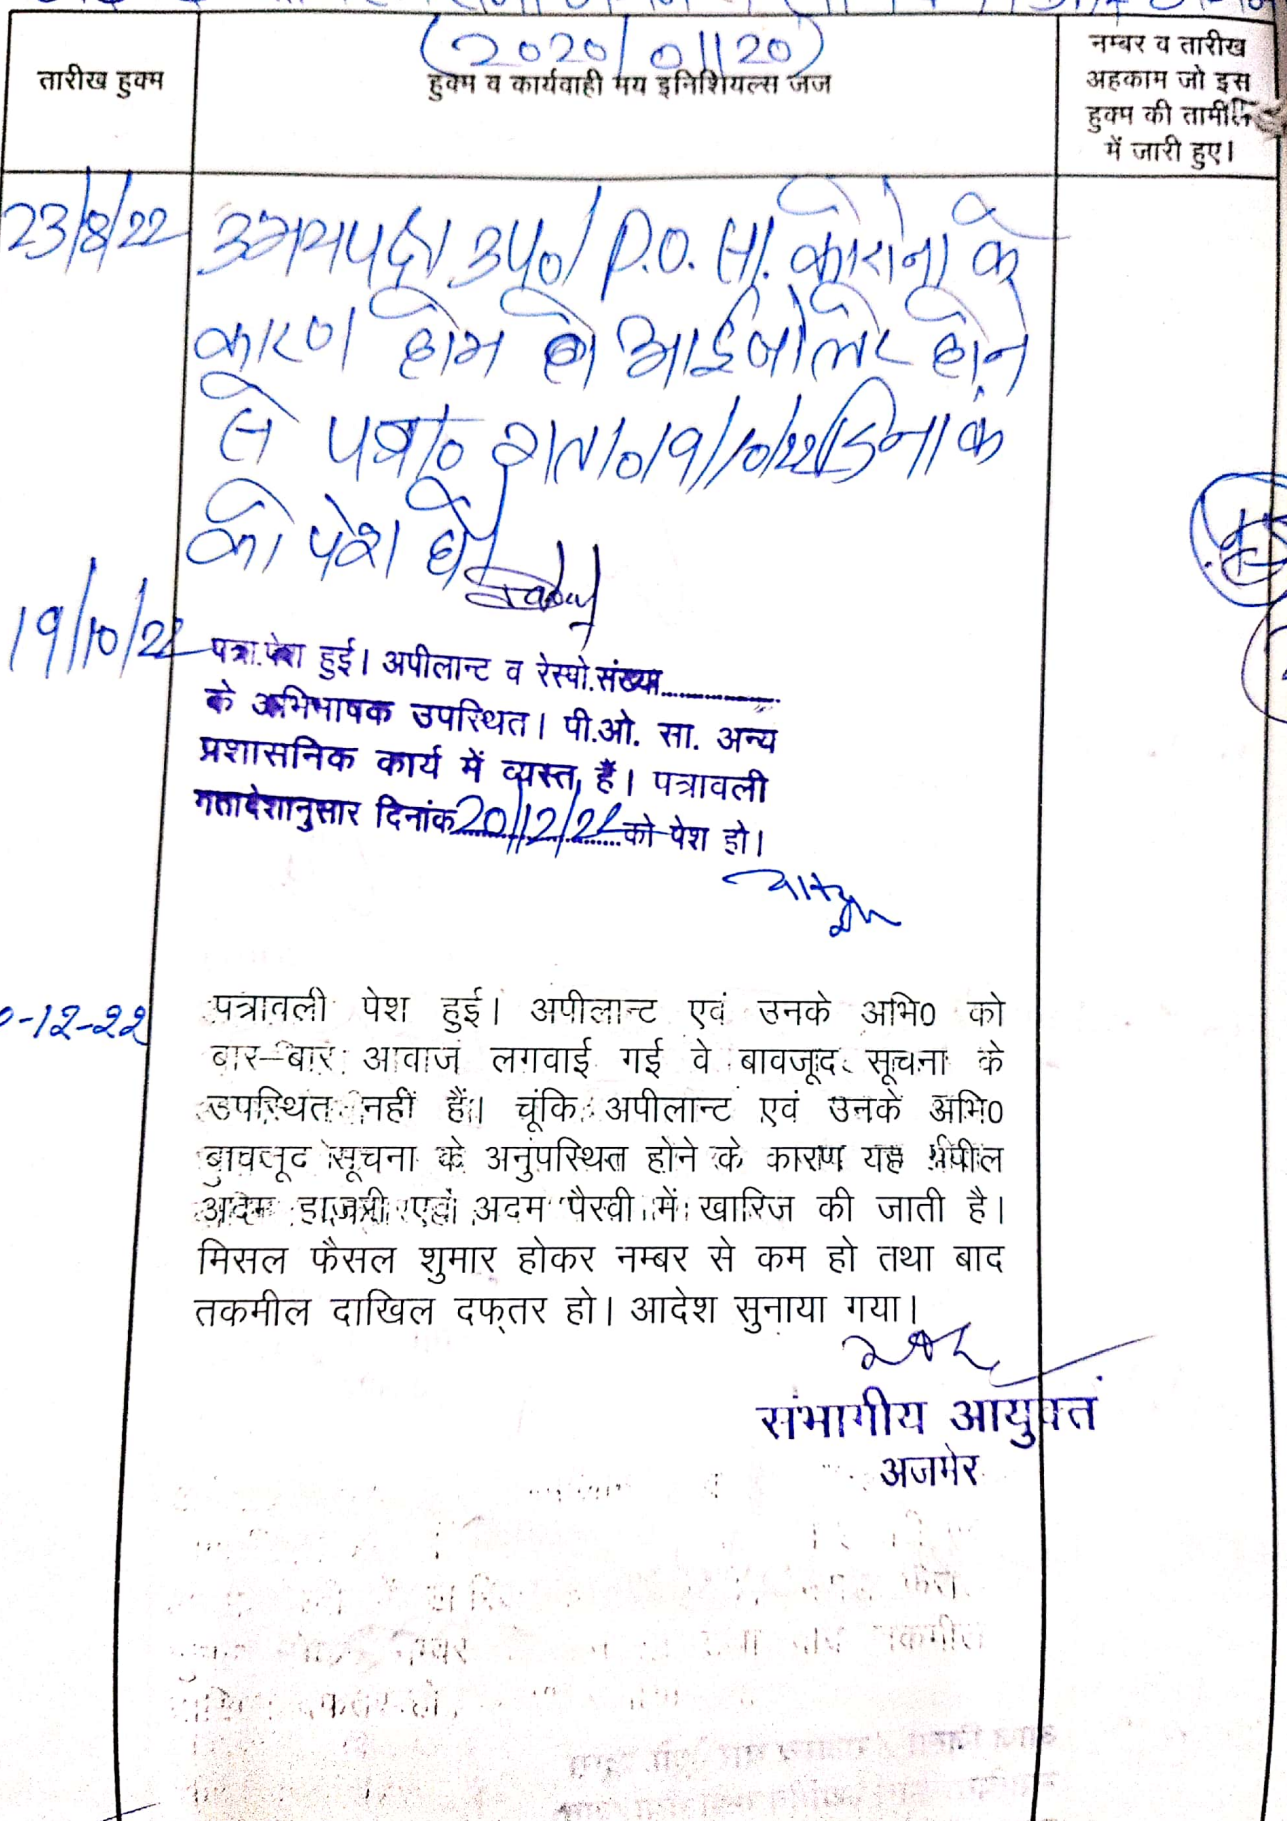 (2020/01120)
तारीख हुक्म
हुक्म व कार्यवाही मय इनिशियल्स जज
नम्बर व तारीख
अहकाम जो इस
हुक्म की तामील
में जारी हुए।
23/8/22
उभयपक्ष उप0/ P.O. सा. कोरोना के
कारण होम आईजोलेट होने
से पत्रा0 19/10/22 दिनांक
को पेश हो।
19/10/22
पत्रा.पेश हुई। अपीलान्ट व रेस्पो.संख्या..............
के अभिभाषक उपस्थित। पी.ओ. सा. अन्य
प्रशासनिक कार्य में व्यस्त है। पत्रावली
गतादेशानुसार दिनांक 20/12/22 को पेश हो।
-12-22
पत्रावली पेश हुई। अपीलान्ट एवं उनके अभि0 को
बार–बार आवाज लगवाई गई वे बावजूद सूचना के
उपस्थित नहीं हैं। चूंकि अपीलान्ट एवं उनके अभि0
बावजूद सूचना के अनुपस्थित होने के कारण यह अपील
अदम हाजरी एवं अदम पैरवी में खारिज की जाती है।
मिसल फैसल शुमार होकर नम्बर से कम हो तथा बाद
तकमील दाखिल दफ्तर हो। आदेश सुनाया गया।
संभागीय आयुक्त
अजमेर